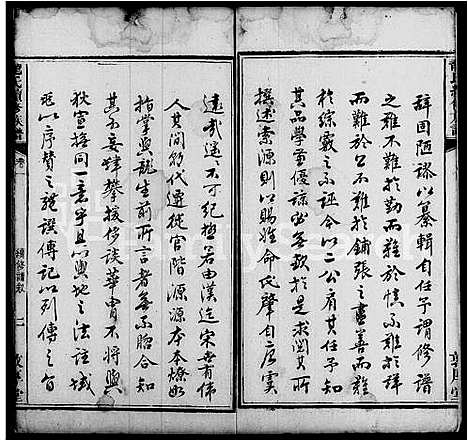 辭固陋謬以纂輯自任予謂修譜
之難不難於勤而難於慎不難於詳
而難於公不難於鋪張之盡善而難
於綜覈之不誣今以二公肩其任予知
其品學兼優諒必無歉於是求閱其所
撰述索源則以賜姓命氏肇自唐虞
遠哉遥不可紀極若由漢迄宋世有偉
人其間劄代遷徙官階源源本本燎如
指掌與龍生前所言者無不脗合知
其不妄肆攀援侈談華冑不將與
狄富掩同一意乎且以輿地之法註域
兆以序贊之體選傳記以列傳之旨
龍氏續修族譜
卷一
續修譜敘
二
敦厚堂